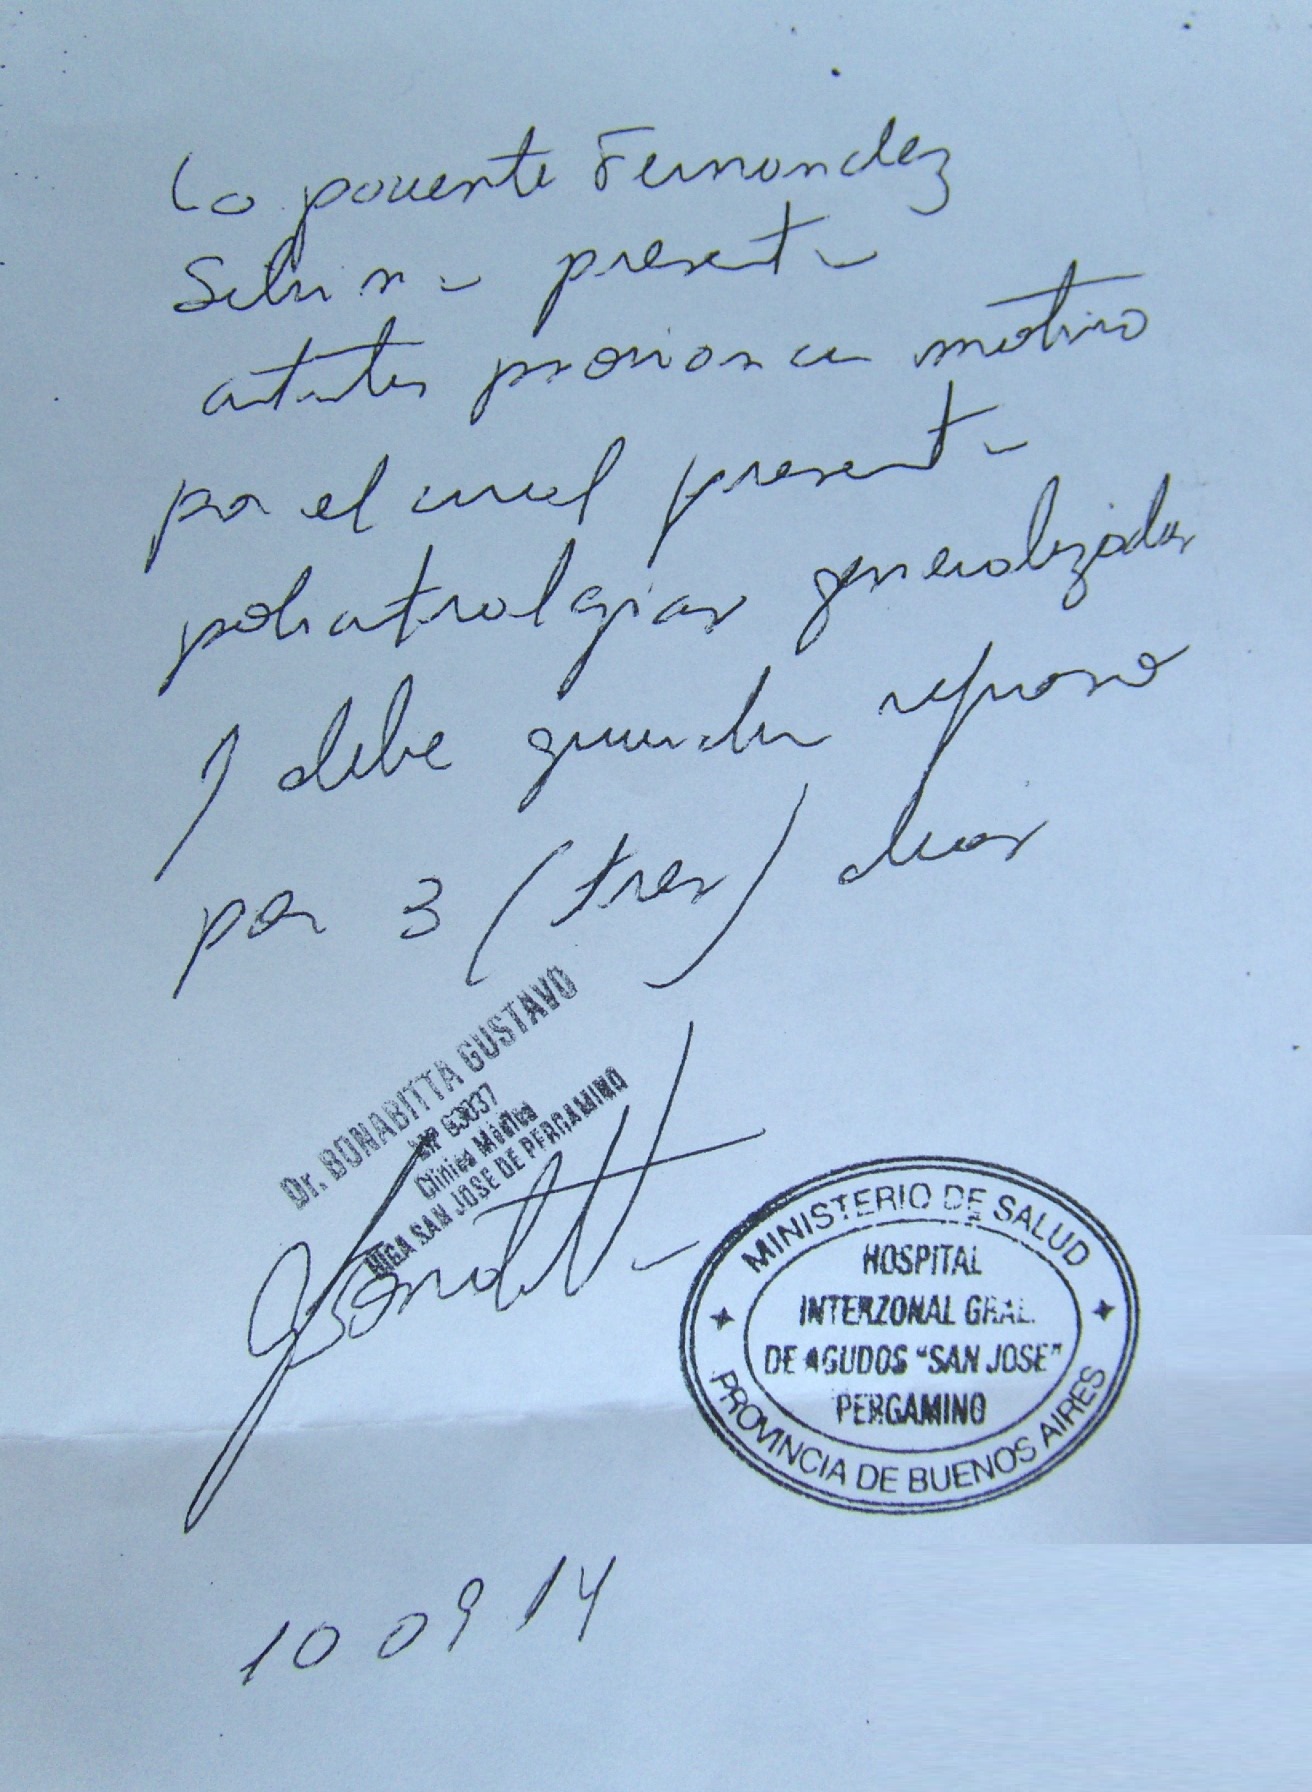 La paciente Fernandez
Silvina presenta
artritis psoriasica motivo
por el cual presenta
poliartralgias generalizadas
y debe guardar reposo
por 3 (tres) dias
Dr. BONABITTA GUSTAVO
MP 63037
Clínica Médica
HIGA SAN JOSE DE PERGAMINO
MINISTERIO DE SALUD
HOSPITAL
INTERZONAL GRAL.
DE AGUDOS "SAN JOSE"
PERGAMINO
PROVINCIA DE BUENOS AIRES
10 09 14